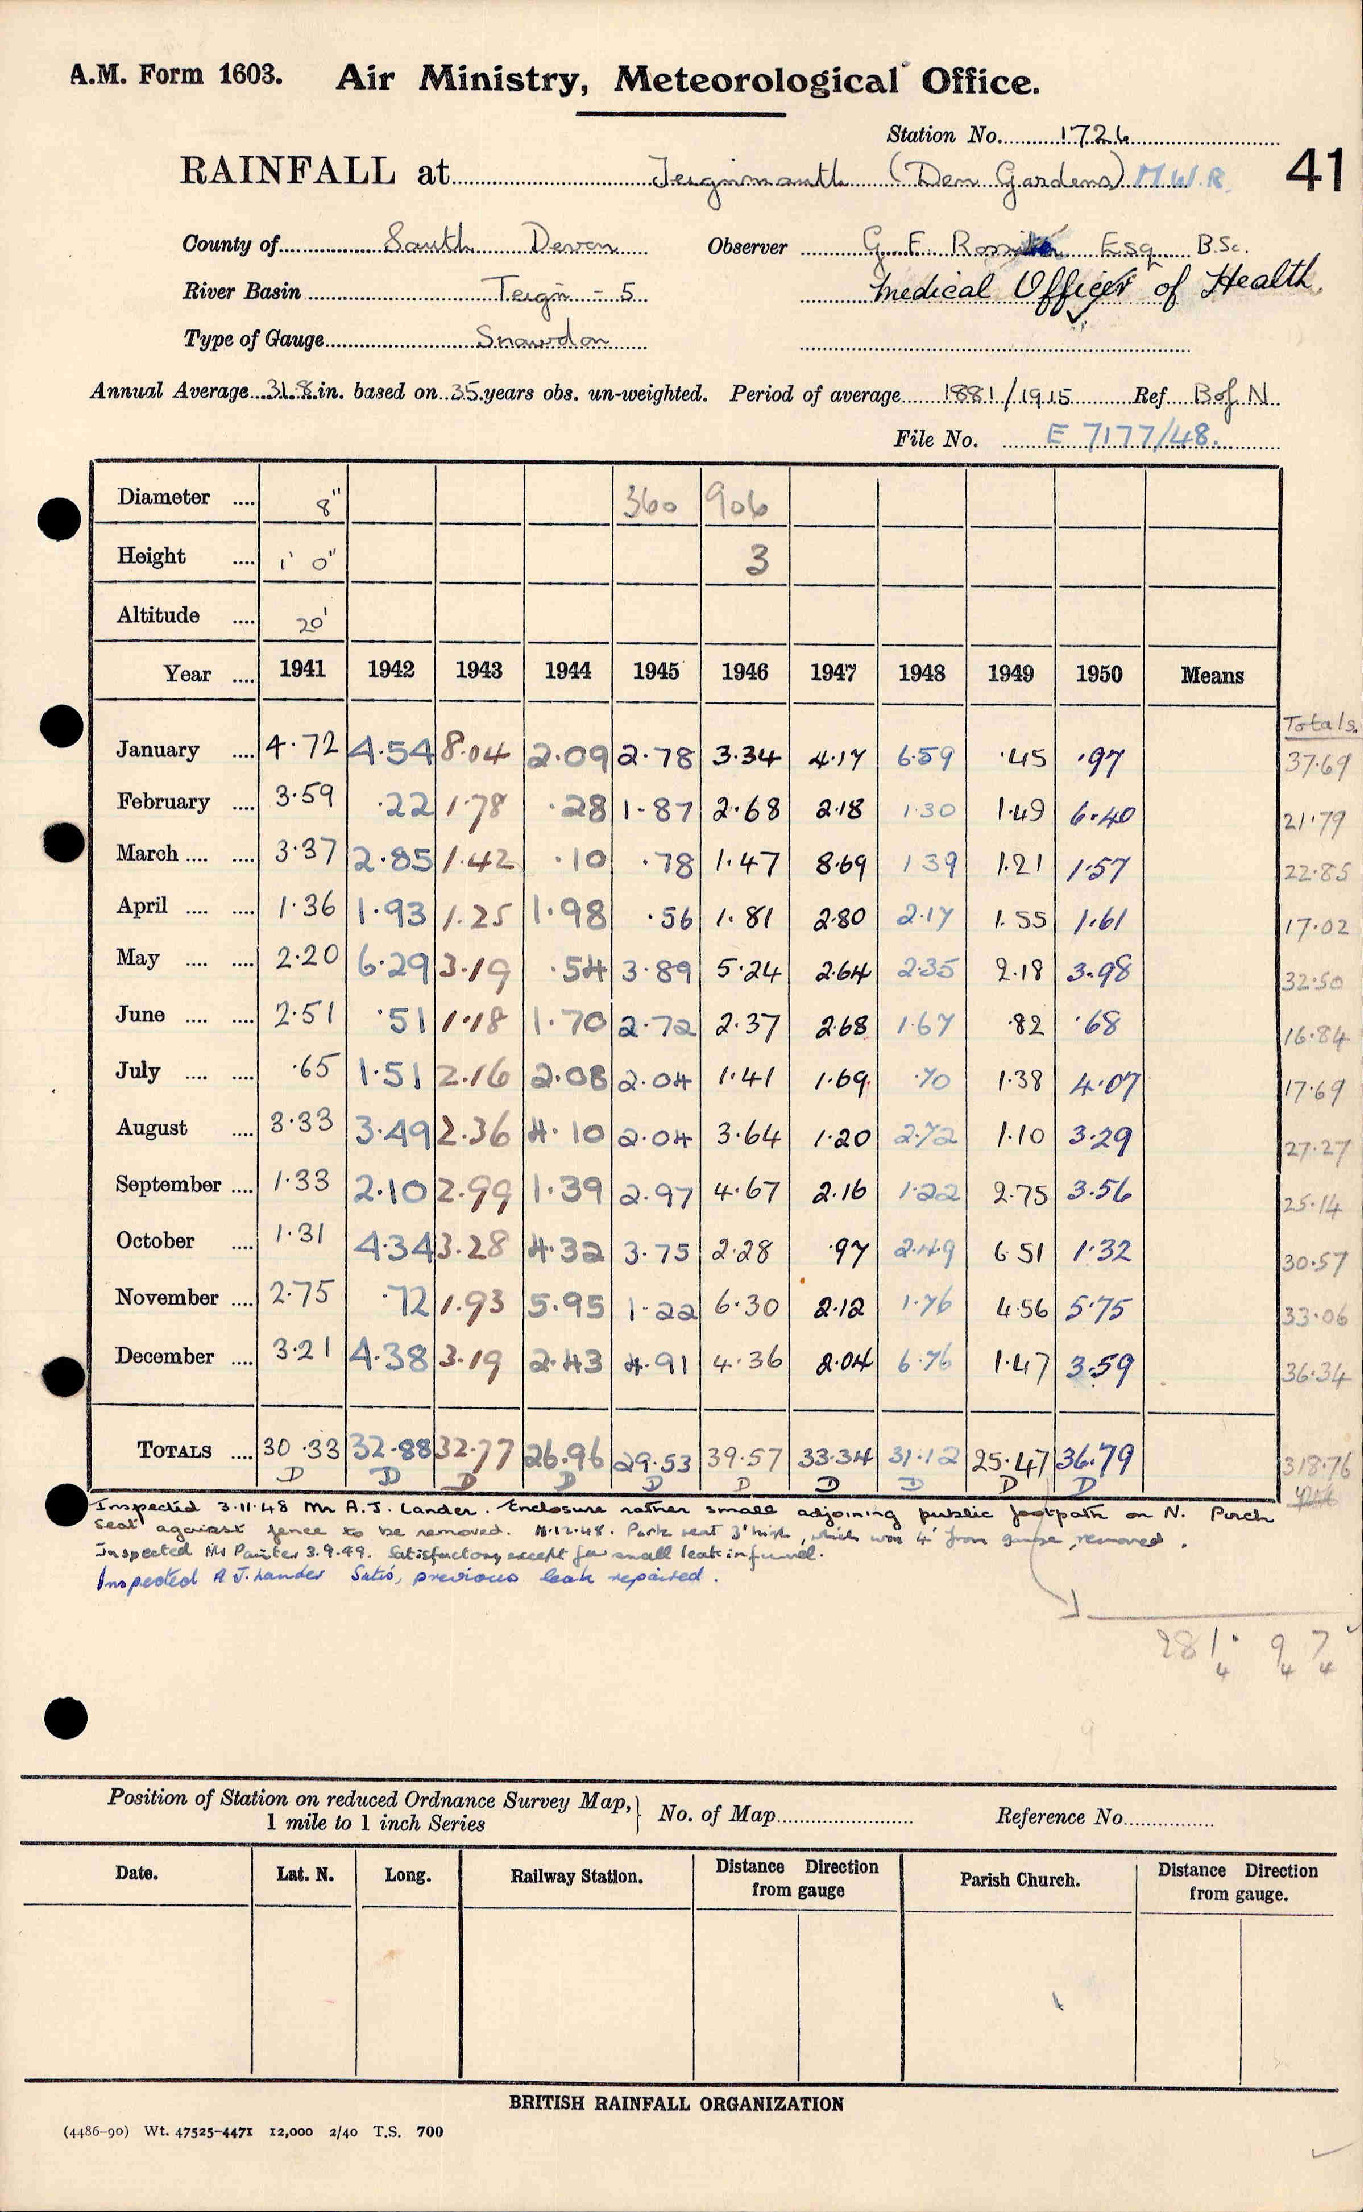 A.M. Form 1603. Air Ministry, Meteorological Office.
Station No. 1726
RAINFALL at Teignmouth (Den Gardens) M.W.R. 41
County of South Devon Observer G. E. Esq B.Sc.
River Basin Teign - 5 Medical Officer of Health
Type of Gauge Snowdon
Annual Average 31.8 in. based on 35 years obs. un-weighted. Period of average 1881/1915 Ref B of N
File No. E 7177/48.
Diameter .... 8" 360 906
Height .... 1' 0" 3
Altitude .... 20'
Year .... 1941 1942 1943 1944 1945 1946 1947 1948 1949 1950 Means
Totals.
January .... 4.72 4.54 8.04 2.09 2.78 3.34 4.17 6.59 .45 .97 37.69
February .... 3.59 .22 1.78 .28 1.87 2.68 2.18 1.30 1.49 6.40 21.79
March .... .... 3.37 2.85 1.42 .10 .78 1.47 8.69 1 39 1.21 1.57 22.85
April .... .... 1.36 1.93 1.25 1.98 .56 1.81 2.80 2.17 1.55 1.61 17.02
May .... .... 2.20 6.29 3.19 .54 3.89 5.24 2.64 2.35 2.18 3.98 32.50
June .... .... 2.51 .51 1.18 1.70 2.72 2.37 2.68 1.67 .82 .68 16.84
July .... .... .65 1.51 2.16 2.08 2.04 1.41 1.69 .70 1.38 4.07 17.69
August .... 3.33 3.49 2.36 4.10 2.04 3.64 1.20 2.72 1.10 3.29 27.27
September .... 1.33 2.10 2.99 1.39 2.97 4.67 2.16 1.22 2.75 3.56 25.14
October .... 1.31 4.34 3.28 4.32 3.75 2.28 .97 2.49 6 51 1.32 30.57
November .... 2.75 .72 1.93 5.95 1.22 6.30 2.12 1.76 4.56 5.75 33.06
December .... 3.21 4.38 3.19 2.43 4.91 4.36 2.04 6.76 1.47 3.59 36.34
TOTALS .... 30.33 32.88 32.77 26.96 29.53 39.57 33.34 31.12 25.47 36.79 318.76
D D D D D D D D D D
Inspected 3.11.48 Mr A.J. Lander. Enclosure rather small adjoining public footpath on N. Porch
seat against fence to be removed. 11.12.48. Park seat 3' high, which was 4' from gauge, removed.
Inspected Mr Painter 3.9.49. Satisfactory except for small leak in funnel.
Inspected A J. Lander Satis, previous leak repaired.
281. 97
4 4 4
Position of Station on reduced Ordnance Survey Map,
1 mile to 1 inch Series
No. of Map Reference No.
Date. Lat. N. Long. Railway Station. Distance Direction from gauge Parish Church. Distance Direction from gauge.
BRITISH RAINFALL ORGANIZATION
(4486-90) Wt. 47525-4471 12,000 2/40 T.S. 700